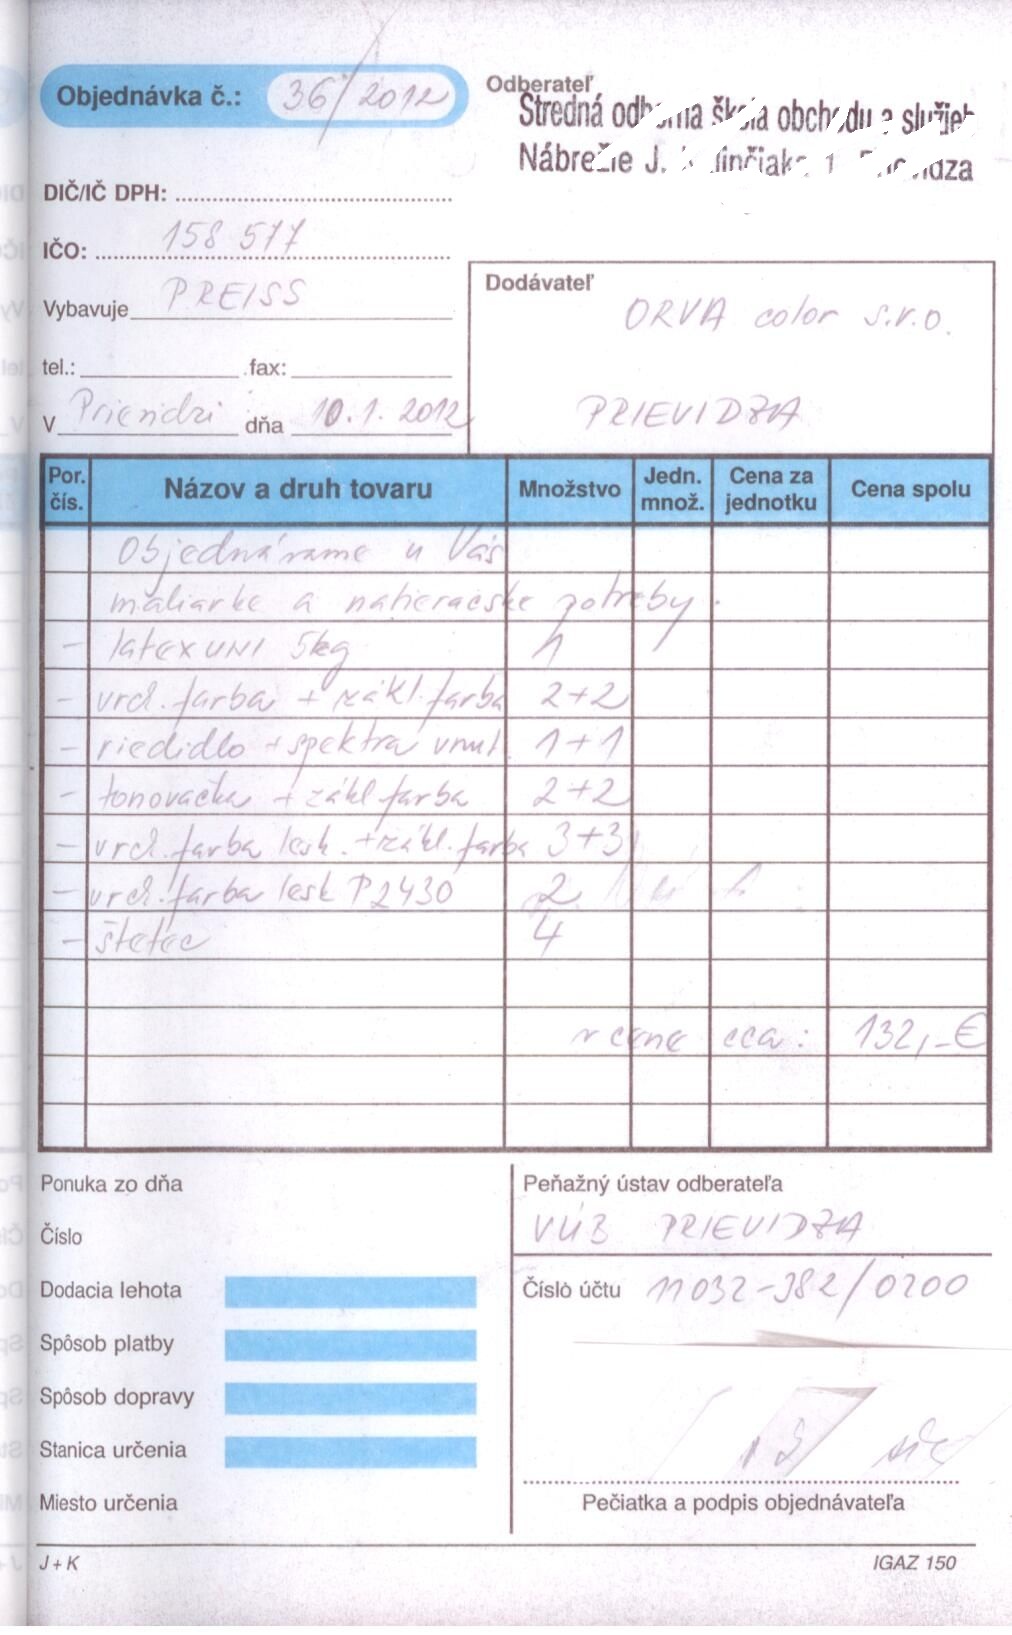 Objednávka č.: 36/2012
Odberateľ
Stredná odborná škola obchodu a služieb
Nábrežie J. 1, Prievidza
DIČ/IČ DPH:
IČO: 158 577
Vybavuje PREISS
tel.: fax:
V Prievidzi dňa 10.1.2012
Dodávateľ
ORVA color s.r.o.
PRIEVIDZA
Por. čís. Názov a druh tovaru Množstvo Jedn. množ. Cena za jednotku Cena spolu
Objednávame u Vás
maliarke a natieračske potreby.
- latex UNI 5kg 1
- vrch. farba + zákl. farba 2+2
- riedidlo + spektra vnut. 1+1
- tonovačka + zákl farba 2+2
- vrch. farba lesk. + zákl. farba 3+3
- vrch. farba lesk P2430 2
- štetec 4
v cene cca: 132,-€
Ponuka zo dňa
Číslo
Dodacia lehota
Spôsob platby
Spôsob dopravy
Stanica určenia
Miesto určenia
Peňažný ústav odberateľa
VÚB PRIEVIDZA
Číslo účtu 11032-382/0200
Pečiatka a podpis objednávateľa
J + K
IGAZ 150